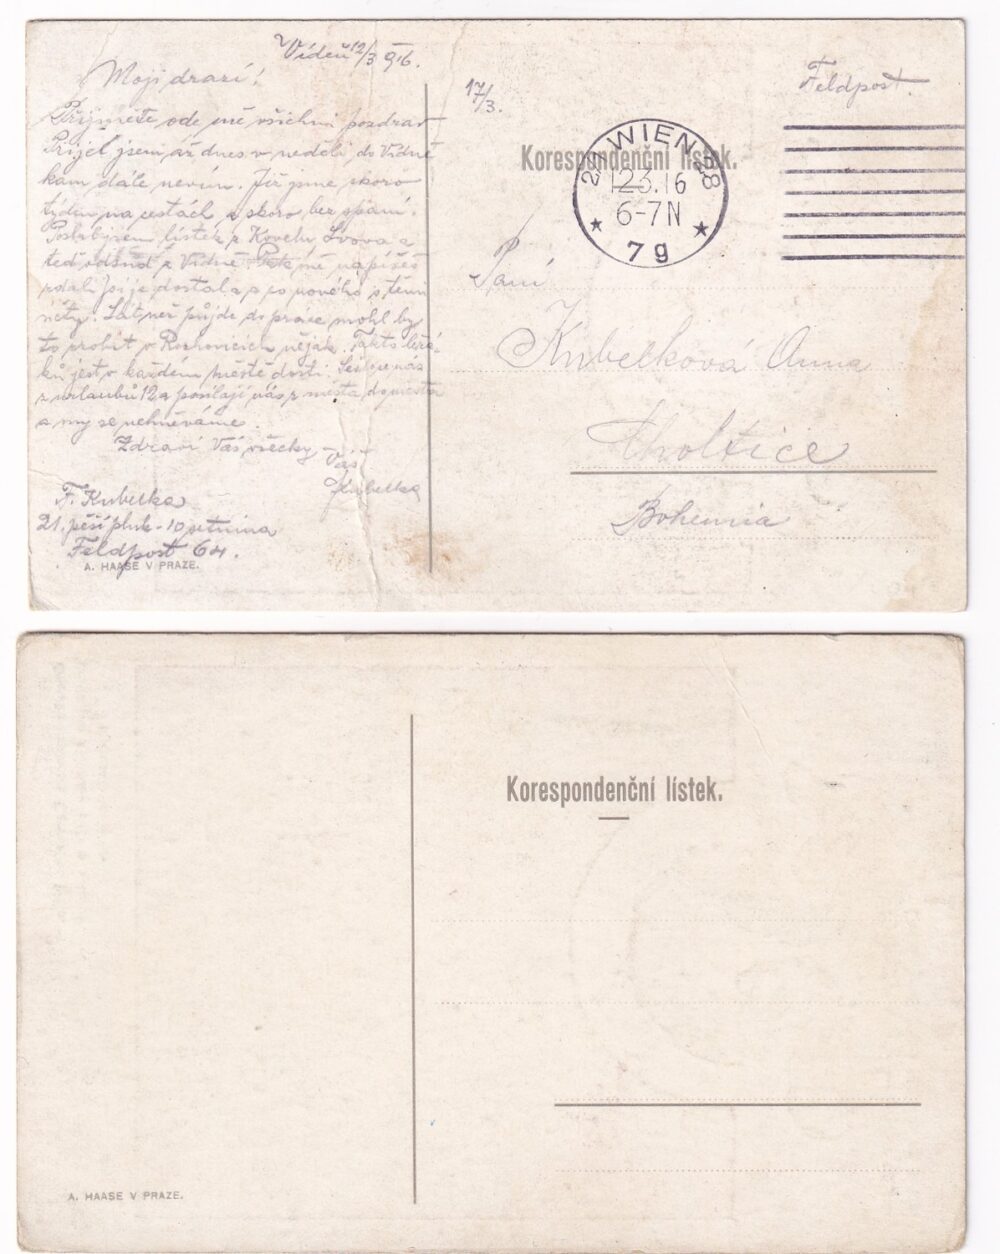 Vídeň 12/3 916.
Moji drazí!
Přijměte ode mě všichni pozdrav
Přijel jsem až dnes v neděli do Vídně
kam dále nevím. Již jsme skoro
týden na cestách a skoro bez spaní.
Poslal jsem lístek z Kovelu, Lvova a
teď odsud z Vídně. mě napíšeš
zdali jsi je dostala a co nového s těmi
půjde do práce mohl by
to probit v nějak. Takto
jest v každém městě dosti. nás
z urlaubů 12 a posílají nás z místa do místa
a my se nehněváme.
Zdraví Vás všecky Váš
FKubelka
F. Kubelka
21. pěší pluk - 10 setnina
Feldpost 64.
A. HAASE V PRAZE.
17/3.
Feldpost.
Korespondenční lístek.
2/1 WIEN 38
12.3.16
6-7N
* 7g *
P
Paní
Kubelková Anna
Choltice
Bohemia
Korespondenční lístek.
A. HAASE V PRAZE.